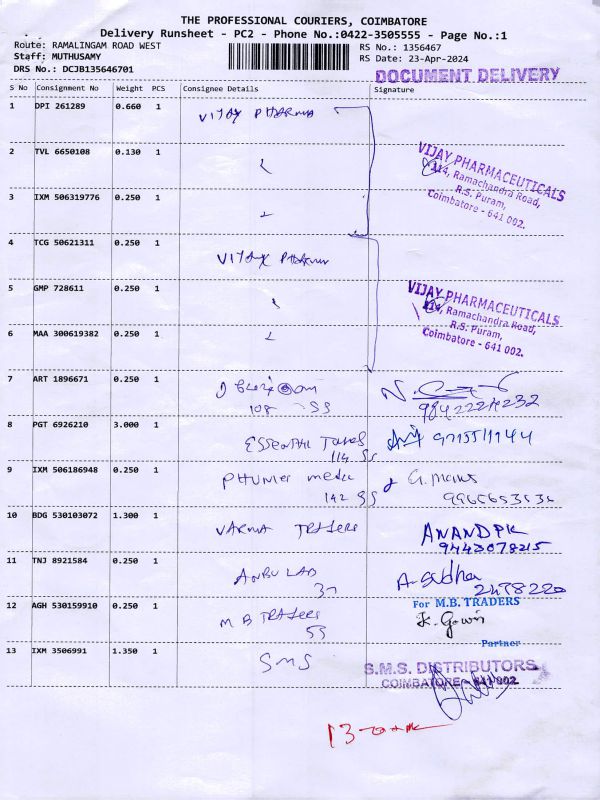 THE PROFESSIONAL COURIERS, COIMBATORE
Delivery Runsheet - PC2 - Phone No.:0422-3505555 - Page No.:1
Route: RAMALINGAM ROAD WEST
RS No.: 1356467
Staff: MUTHUSAMY
RS Date: 23-Apr-2024
DRS No.: DCJB135646701
DOCUMENT DELIVERY
S No Consignment No Weight PCS Consignee Details Signature
1 DPI 261289 0.660 1 VIJAY PHARMA
2 TVL 6650108 0.130 1
VIJAY PHARMACEUTICALS
114, Ramachandra Road,
R.S. Puram,
Coimbatore - 641 002.
3 IXM 506319776 0.250 1
4 TCG 50621311 0.250 1 VIJAY PHARMA
5 GMP 728611 0.250 1
VIJAY PHARMACEUTICALS
114, Ramachandra Road,
R.S. Puram,
Coimbatore - 641 002.
6 MAA 300619382 0.250 1
7 ART 1896671 0.250 1
108 SS
8 PGT 6926210 3.000 1
114 SS
9 IXM 506186948 0.250 1
142 SS
10 BDG 530103072 1.300 1 VARMA TRADERS ANAND PK
9443078215
11 TNJ 8921584 0.250 1 ANBU LAB A. Sudha
37 2478220
12 AGH 530159910 0.250 1 M B TRADERS
55
For M.B. TRADERS
K. Gowri
Partner
13 IXM 3506991 1.350 1 SMS
S.M.S. DISTRIBUTORS
COIMBATORE - 641 002